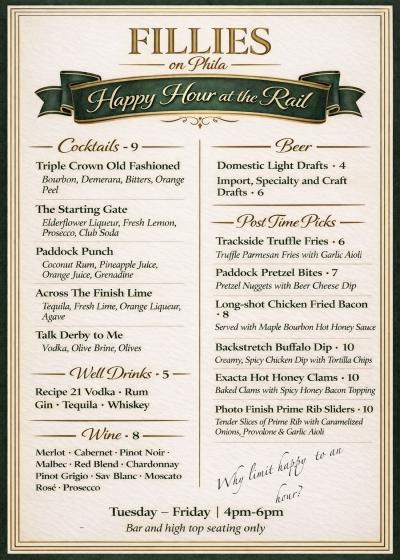 FILLIES
on Phila
Happy Hour at the Rail
Cocktails - 9
Triple Crown Old Fashioned
Bourbon, Demerara, Bitters, Orange
Peel
The Starting Gate
Elderflower Liqueur, Fresh Lemon,
Prosecco, Club Soda
Paddock Punch
Coconut Rum, Pineapple Juice,
Orange Juice, Grenadine
Across The Finish Lime
Tequila, Fresh Lime, Orange Liqueur,
Agave
Talk Derby to Me
Vodka, Olive Brine, Olives
Well Drinks · 5
Recipe 21 Vodka · Rum
Gin · Tequila · Whiskey
Wine · 8
Merlot · Cabernet · Pinot Noir ·
Malbec · Red Blend · Chardonnay
Pinot Grigio · Sav Blanc · Moscato
Rosé · Prosecco
Beer
Domestic Light Drafts · 4
Import, Specialty and Craft
Drafts · 6
Post Time Picks
Trackside Truffle Fries · 6
Truffle Parmesan Fries with Garlic Aioli
Paddock Pretzel Bites · 7
Pretzel Nuggets with Beer Cheese Dip
Long-shot Chicken Fried Bacon
· 8
Served with Maple Bourbon Hot Honey Sauce
Backstretch Buffalo Dip · 10
Creamy, Spicy Chicken Dip with Tortilla Chips
Exacta Hot Honey Clams · 10
Baked Clams with Spicy Honey Bacon Topping
Photo Finish Prime Rib Sliders · 10
Tender Slices of Prime Rib with Caramelized
Onions, Provolone & Garlic Aioli
Why limit happy to an
hour?
Tuesday – Friday | 4pm-6pm
Bar and high top seating only